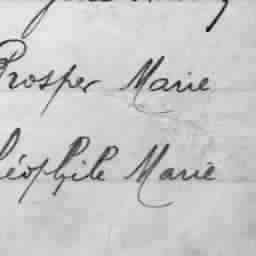 Prosper Marie
éophile Marie